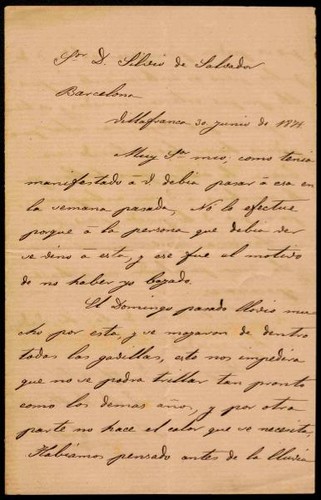 Sr D. Silvio de Salvador
Barcelona
Villafranca 30 junio de 1871
Muy Sr mio, como tenia
manifestado á V. debia pasar á esa en
la semana pasada, No lo efectue
porque á la persona que debia ver
se vino á esta, y ese fue el motivo
de no haber yo bajado.
El Domingo pasado llovió mu
cho por esta, y se mojaron de dentro
todas las gavillas, esto nos impedira
que no se podra trillar tan pronto
como los demas años, y por otra
parte no hace el calor que se necesita.
Habiamos pensado antes de la lluvia